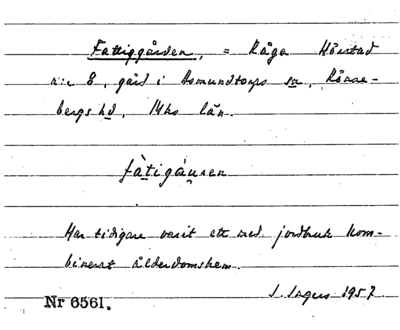 Fattiggården, = Råga Hörstad
n:r 8, gård i Asmundtorps sn, Rönne-
bergs hd, Mhs län.
fàtigáụren
Har tidigare varit ett med jordbruk kom-
binerat ålderdomshem.
J. Ingers 1957
Nr 6561.